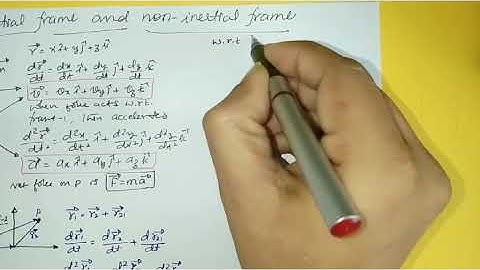 tial frame and non-inertial frame
r⃗ = xî + yĵ + zk̂
w.r.t
dr⃗/dt = dx/dt î + dy/dt ĵ + dz/dt k̂
v⃗ = vxî + vyĵ + vzk̂
when force acts w.r.t
frame-1, then accelerated
d²r⃗/dt² = d²x/dt² î + d²y/dt² ĵ + d²z/dt² k̂
a⃗ = axî + ayĵ + azk̂
net force m P is F⃗ = ma⃗
P
r⃗₁ = r⃗₂ + r⃗₂₁
dr⃗₁/dt = dr⃗₂/dt + dr⃗₂₁/dt